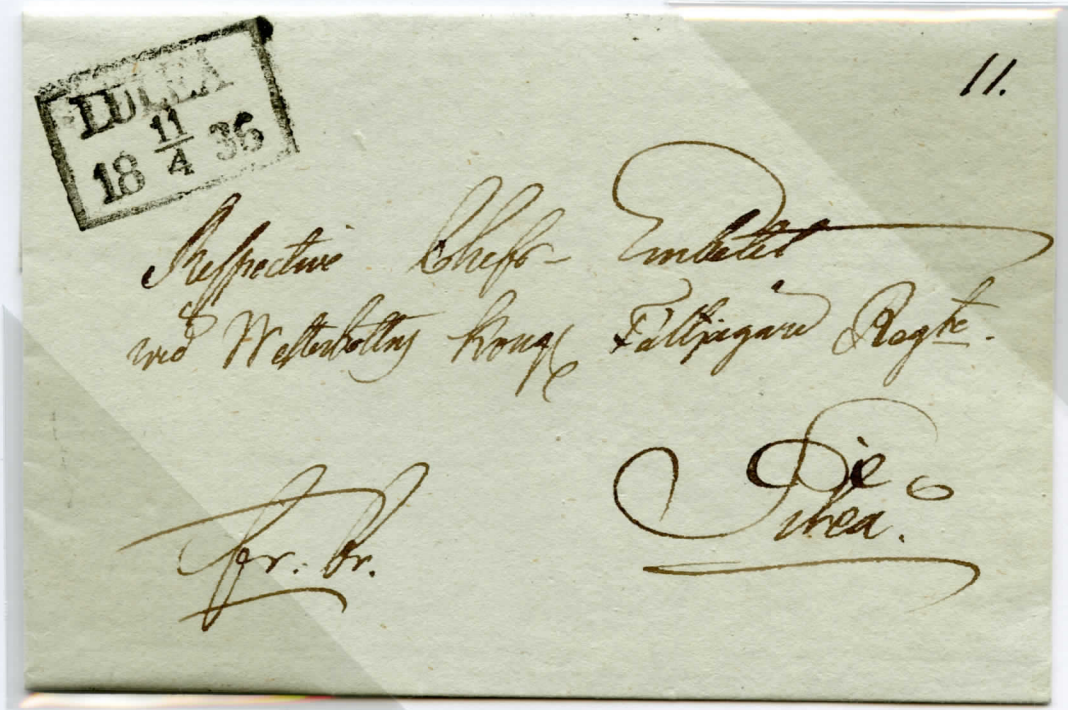 LULEÅ
18 11/4 36
11.
Respective Chefs-Embetet
wid Westerbottns Kongl Fältjägare Regte.
Piteå.
Fr. Br.